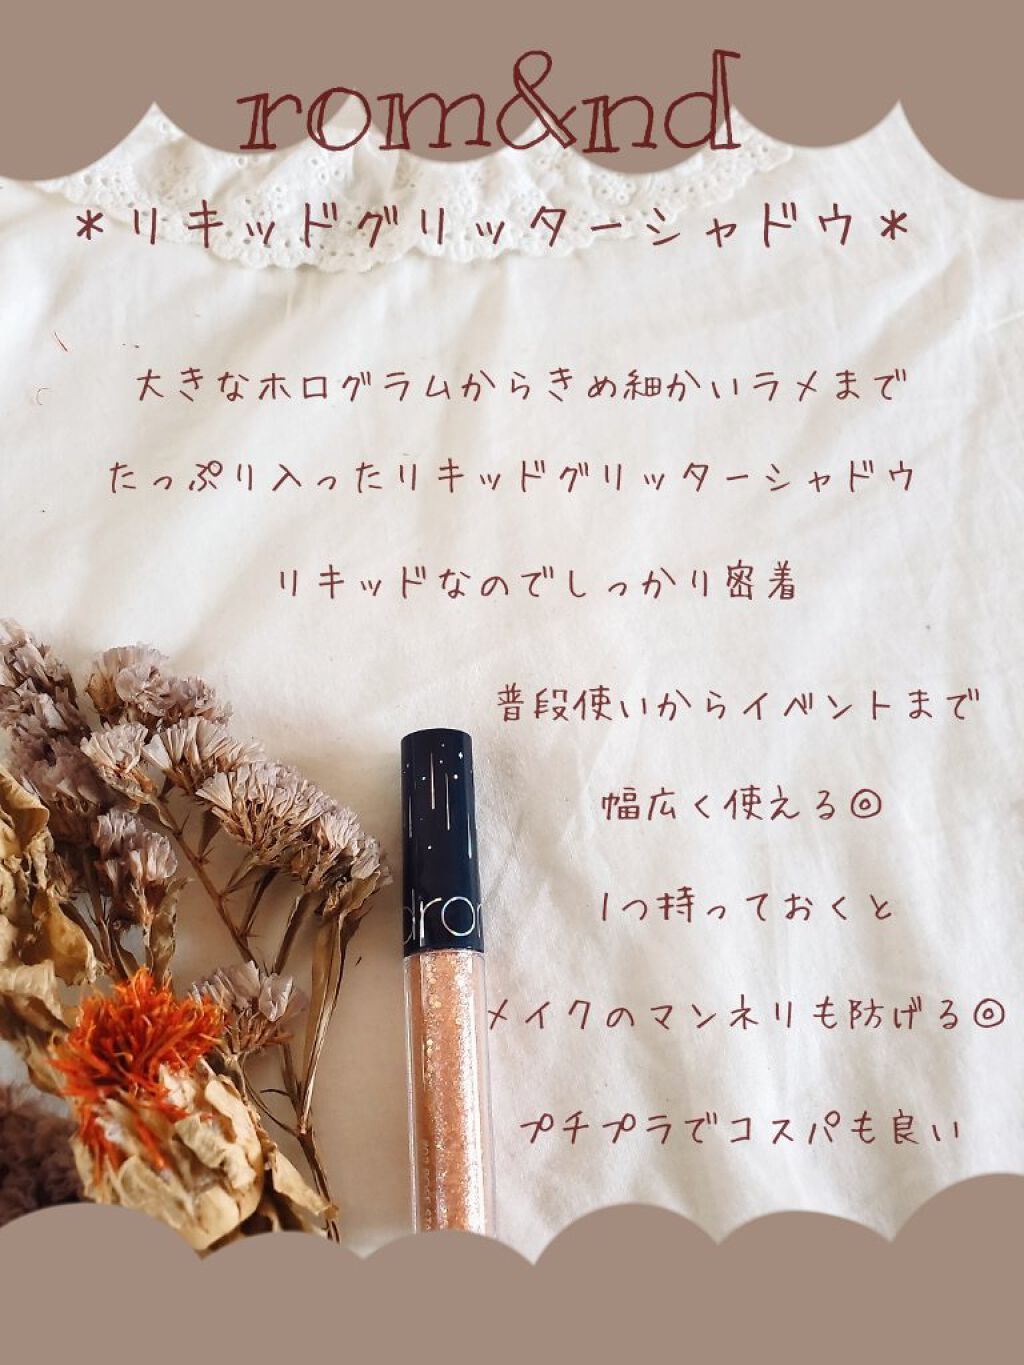 rom&nd
＊リキッドグリッターシャドウ＊
大きなホログラムからきめ細かいラメまで
たっぷり入ったリキッドグリッターシャドウ
リキッドなのでしっかり密着
普段使いからイベントまで
幅広く使える◎
1つ持っておくと
メイクのマンネリも防げる◎
プチプラでコスパも良い
dror